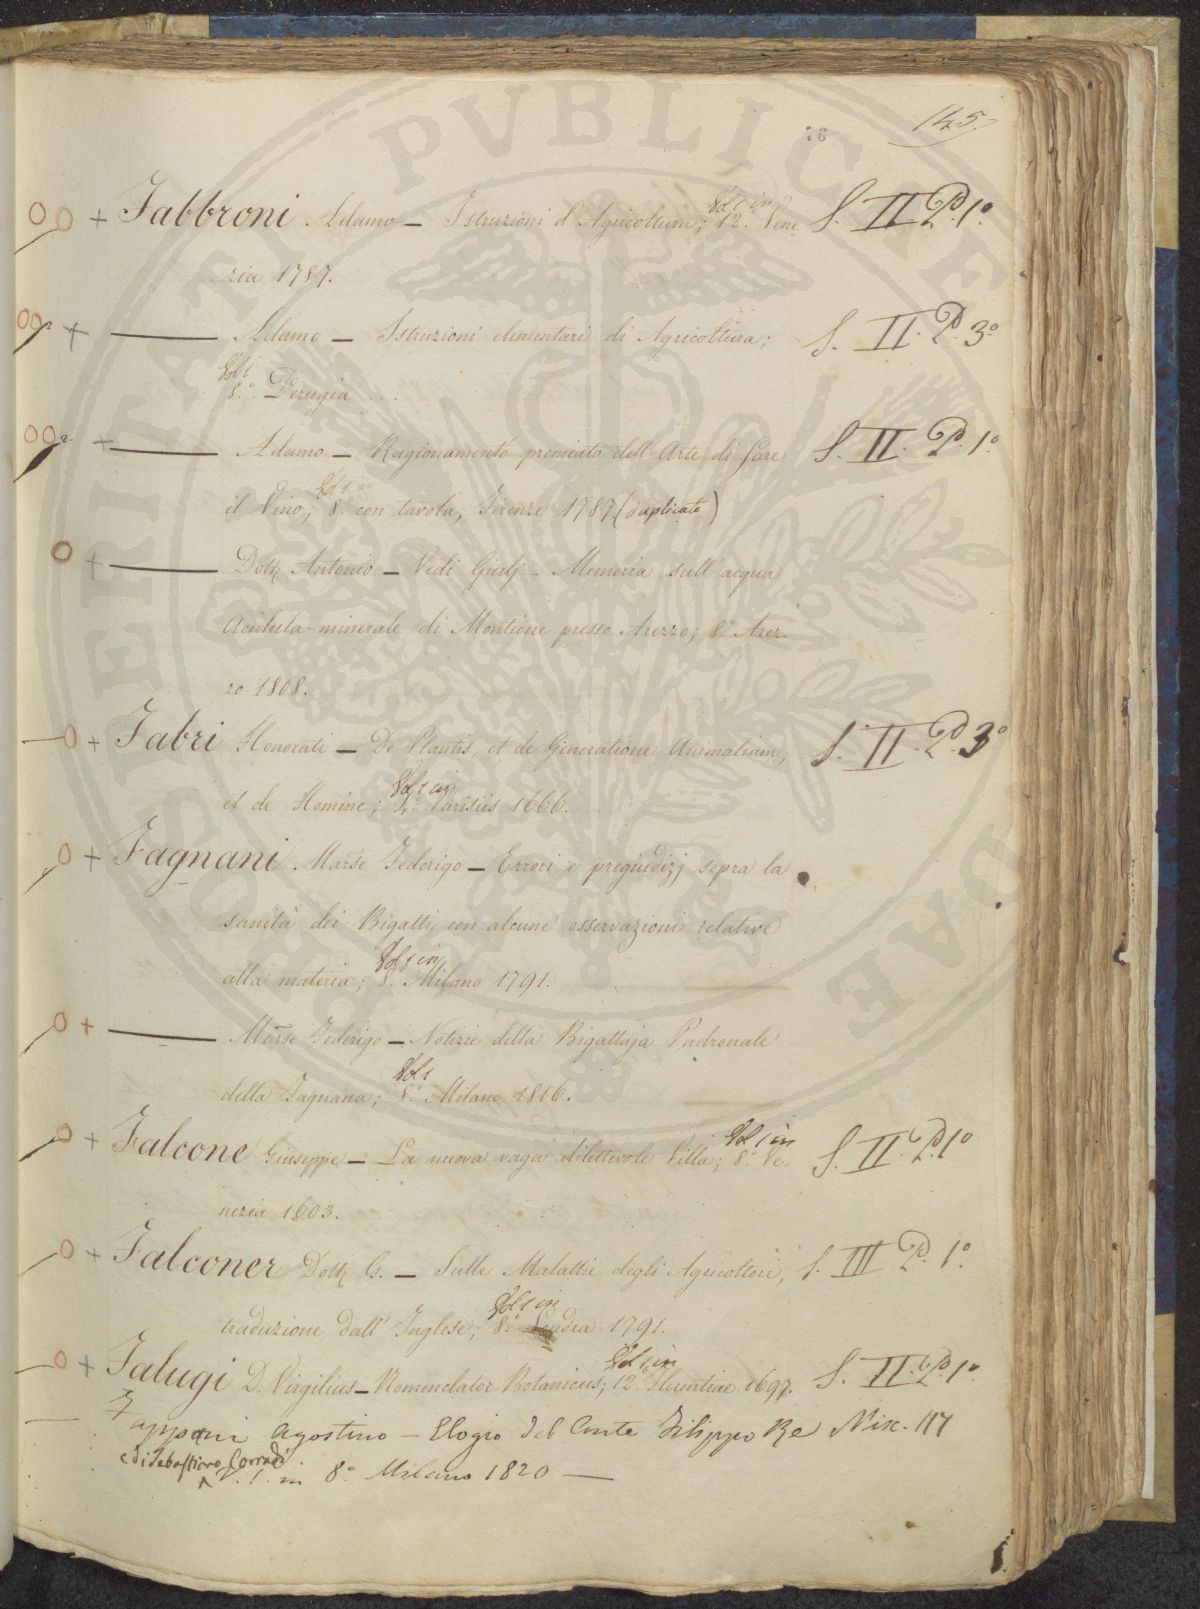 145.
76
Fabbroni Adamo — Istruzioni d'Agricoltura; Vol 1 in 12.° Vene S. II P.° 1°
zia 1787.
——— Adamo — Istruzioni elementari di Agricoltura; S. II. P.° 3°
Vol 1 8.° Perugia ....
——— Adamo — Ragionamento premiato dell'Arte di fare S. II. P.° 1°
il Vino; Vol 1 in 8.° con tavola, Firenze 1787. (duplicato)
——— Dott. Antonio — Vedi Giulj — Memoria sull'acqua
Acidula-minerale di Montione presso Arezzo; 8.° Arez-
zo 1808.
Fabri Honorati — De Plantis, et de Generatione Animalium, S. II. P.° 3°
et de Homine; Vol 1 in 4.° Parisiis 1666.
Fagnani Marse Federigo — Errori e pregiudizj sopra la
sanità dei Bigatti con alcune osservazioni relative
alla materia; Vol 1 in 8.° Milano 1791.
——— Marse Federigo — Notizie della Bigattaja Padronale
della Fagnana; Vol 1 8.° Milano 1816.
Falcone Giuseppe — La nuova vaga dilettevole Villa; Vol 1 in 8.° Ve- S. II. P.° 1°
nezia 1603.
Falconer Dott. G. — Sulle Malattie degli Agricoltori, S. III P.° 1°
traduzione dall'Inglese; Vol 1 in 8.° Londra 1791.
Falugi D. Virgilius — Nomenclator Botanicus; Vol 1 in 12.° Florentiae 1697. S. II. P.° 1°
Fappani Agostino — Elogio del Conte Filippo Re Misc. 117
e di Sebastiano Corradi V. 1. in 8.° Milano 1820 —
PROSPERITATI PVBLICAE AVGENDAE